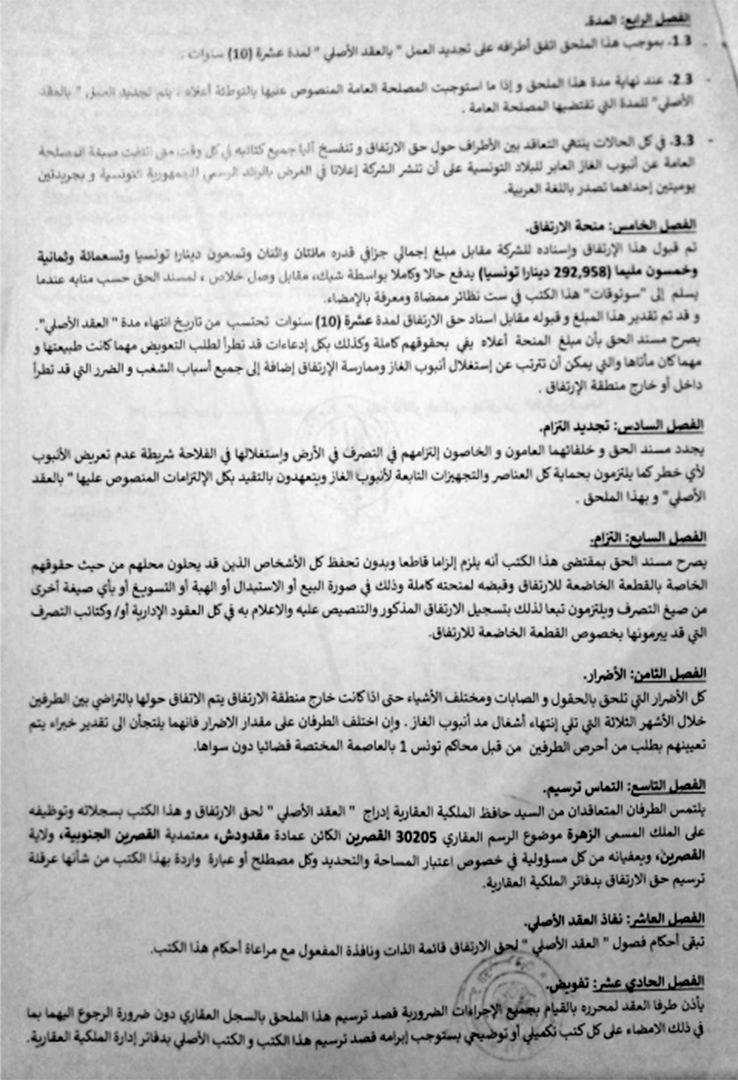 الفصل الرابع: المدة.
1.3. بموجب هذا الملحق اتفق أطرافه على تجديد العمل " بالعقد الأصلي " لمدة عشرة (10) سنوات .
2.3. عند نهاية مدة هذا الملحق و إذا ما استوجبت المصلحة العامة المنصوص عليها بالتوطئة أعلاه ، يتم تجديد العمل " بالعقد
الأصلي" للمدة التي تقتضيها المصلحة العامة .
3.3. في كل الحالات ينتهي التعاقد بين الأطراف حول حق الارتفاق و تنفسخ آليا جميع كتائبه في كل وقت متى انتفت صبغة المصلحة
العامة عن أنبوب الغاز العابر للبلاد التونسية على أن تنشر الشركة إعلانا في الغرض بالرائد الرسمي للجمهورية التونسية و بجريدتين
يوميتين إحداهما تصدر باللغة العربية.
الفصل الخامس: منحة الارتفاق.
تم قبول هذا الإرتفاق وإسناده للشركة مقابل مبلغ إجمالي جزافي قدره مائتان واثنان وتسعون دينارا تونسيا وتسعمائة وثمانية
وخمسون مليما (292,958 دينارا تونسيا) يدفع حالا وكاملا بواسطة شيك، مقابل وصل خلاص ، لمسند الحق حسب منابه عندما
يسلم إلى "سوتوقات" هذا الكتب في ست نظائر ممضاة ومعرفة بالإمضاء.
و قد تم تقدير هذا المبلغ و قبوله مقابل اسناد حق الارتفاق لمدة عشرة (10) سنوات تحتسب من تاريخ انتهاء مدة " العقد الأصلي".
يصرح مسند الحق بأن مبلغ المنحة أعلاه يفي بحقوقهم كاملة وكذلك بكل إدعاءات قد تطرأ لطلب التعويض مهما كانت طبيعتها و
مهما كان مأتاها والتي يمكن أن تترتب عن إستغلال أنبوب الغاز وممارسة الإرتفاق إضافة إلى جميع أسباب الشغب و الضرر التي قد تطرأ
داخل أو خارج منطقة الإرتفاق .
الفصل السادس: تجديد التزام.
يجدد مسند الحق و خلفائهما العامون و الخاصون إلتزامهم في التصرف في الأرض وإستغلالها في الفلاحة شريطة عدم تعريض الأنبوب
لأي خطر كما يلتزمون بحماية كل العناصر والتجهيزات التابعة لأنبوب الغاز ويتعهدون بالتقيد بكل الإلتزامات المنصوص عليها " بالعقد
الأصلي" و بهذا الملحق .
الفصل السابع: التزام.
يصرح مسند الحق بمقتضى هذا الكتب أنه يلزم إلزاما قاطعا وبدون تحفظ كل الأشخاص الذين قد يحلون محلهم من حيث حقوقهم
الخاصة بالقطعة الخاضعة للارتفاق وقبضه لمنحته كاملة وذلك في صورة البيع أو الاستبدال أو الهبة أو التسويغ أو بأي صيغة أخرى
من صيغ التصرف ويلتزمون تبعا لذلك بتسجيل الارتفاق المذكور والتنصيص عليه والاعلام به في كل العقود الإدارية أو/ وكتائب التصرف
التي قد يبرمونها بخصوص القطعة الخاضعة للارتفاق.
الفصل الثامن: الأضرار.
كل الأضرار التي تلحق بالحقول و الصابات ومختلف الأشياء حتى اذا كانت خارج منطقة الارتفاق يتم الاتفاق حولها بالتراضي بين الطرفين
خلال الأشهر الثلاثة التي تلي إنتهاء أشغال مد أنبوب الغاز . وإن اختلف الطرفان على مقدار الاضرار فانهما يلتجأن الى تقدير خبراء يتم
تعيينهم بطلب من أحرص الطرفين من قبل محاكم تونس 1 بالعاصمة المختصة قضائيا دون سواها.
الفصل التاسع: التماس ترسيم.
يلتمس الطرفان المتعاقدان من السيد حافظ الملكية العقارية إدراج " العقد الأصلي " لحق الارتفاق و هذا الكتب بسجلاته وتوظيفه
على الملك المسمى الزهرة موضوع الرسم العقاري 30205 القصرين الكائن عمادة مقدودش، معتمدية القصرين الجنوبية، ولاية
القصرين، ويعفيانه من كل مسؤولية في خصوص اعتبار المساحة والتحديد وكل مصطلح أو عبارة واردة بهذا الكتب من شأنها عرقلة
ترسيم حق الارتفاق بدفاتر الملكية العقارية.
الفصل العاشر: نفاذ العقد الأصلي.
تبقى أحكام فصول " العقد الأصلي " لحق الارتفاق قائمة الذات ونافذة المفعول مع مراعاة أحكام هذا الكتب.
الفصل الحادي عشر: تفويض.
يأذن طرفا العقد لمحرره بالقيام بجميع الإجراءات الضرورية قصد ترسيم هذا الملحق بالسجل العقاري دون ضرورة الرجوع اليهما بما
في ذلك الامضاء على كل كتب تكميلي أو توضيحي يستوجب إبرامه قصد ترسيم هذا الكتب و الكتب الأصلي بدفاتر إدارة الملكية العقارية.